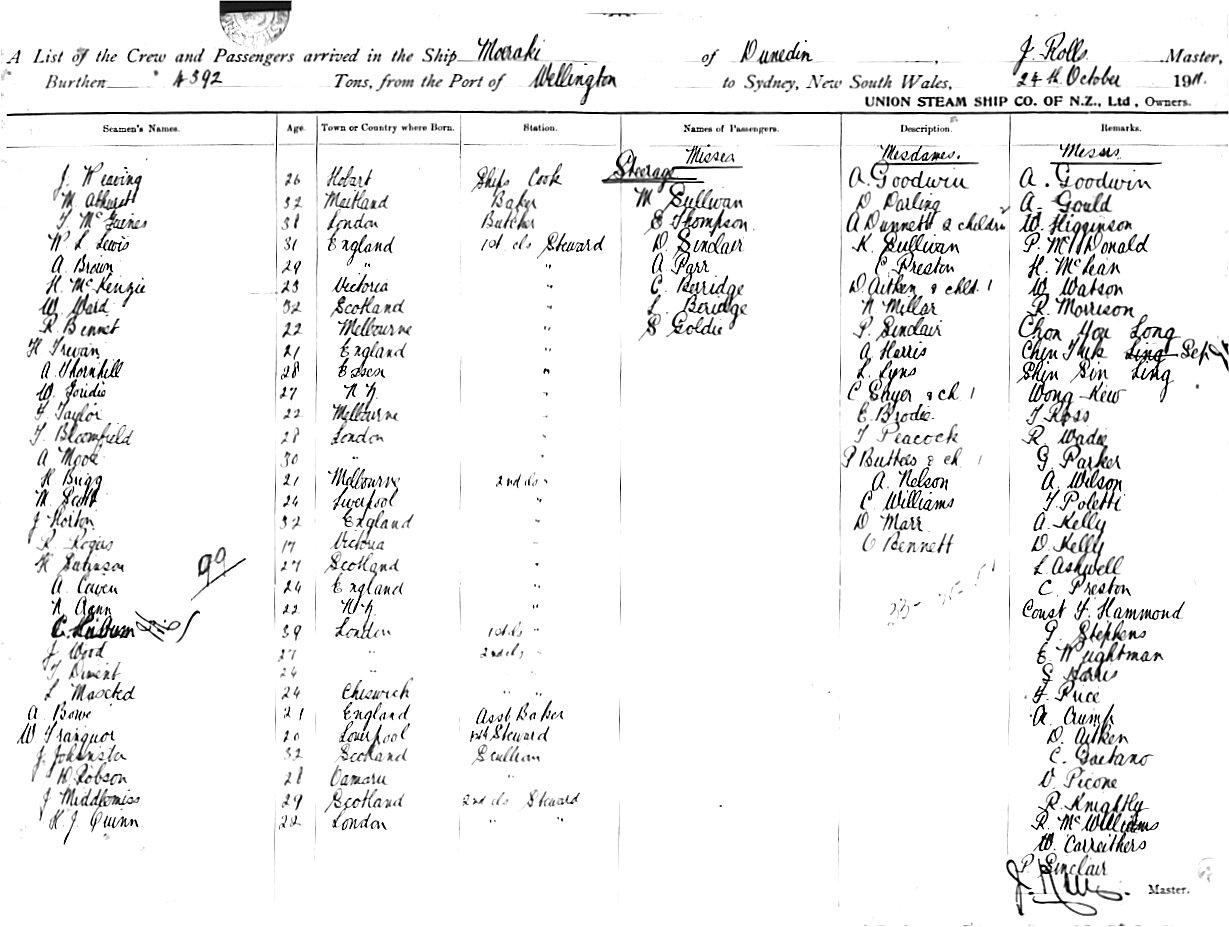 A List of the Crew and Passengers arrived in the Ship Moeraki of Dunedin, J. Rolls Master,
Burthen 4392 Tons, from the Port of Wellington to Sydney, New South Wales, 24th October 1911.
UNION STEAM SHIP CO. OF N.Z., Ltd, Owners.
Seamen's Names. Age. Town or Country where Born. Station. Names of Passengers. Description. Remarks.
Steerage Misses Mesdames. Messrs.
J. Weaving 26 Hobart Ships Cook A. Goodwin A. Goodwin
M. 32 Maitland Baker M Sullivan D Darling A. Gould
T. 38 London Butcher E Thompson A Dunnett 2 children W. Higginson
W. L. Lewis 31 England 1st cls Steward D. Sinclair K. Sullivan P. McDonald
A. Brown 29 " " A Parr C Preston H. McLean
H. McKenzie 23 Victoria " C. Berridge D Aitken & chld. 1 W Watson
W. Ward 32 Scotland " L. Beridge N Millar R. Morrison
R Bennet 22 Melbourne " S Goldie P. Sinclair Chon You Long
H Trevan 21 England " A Harris Chin Ling
A Thornhill 28 Essex " L. Lyns Shin Sin Ling
W. 27 N Z. " C Sayer & ch. 1 Wong Kew
F. Taylor 22 Melbourne " E Brodie. T Ross
T. Bloomfield 28 London " T Peacock R Wadie
A 30 " " P Buttees & ch. 1 G Parker
H Brigg 21 Melbourne 2nd cls " A. Nelson A. Wilson
M. Scott 24 Liverpool " C Williams F Poletti
J Horton 32 England " D Marr A. Kelly
R Rogers 17 Victoria " C Bennett D. Kelly
H 27 Scotland " L Ashwell
99
A. Cowen 24 England " C. Preston
N 22 N Z. " Const F. Hammond
C. 39 London 1st cls " G. Stephens
J Wood 27 " 2nd cls " E Wightman
T Diment 24 " S Harris
L Mascted 24 Chiswick " " F. Price
A Bowe 21 England Asst Baker A. Crump
W Tranquor 20 Liverpool Steward D. Aitken
J. Johnston 32 Scotland Scullion C. Gaetano
W. Robson 28 Oamaru " D. Picone
J Middlemiss 29 Scotland 2nd cls Steward R. Knightly
H. J. Quinn 22 London " " R. McWilliams
W. Carruthers
P. Sinclair
J. Rolls. Master.